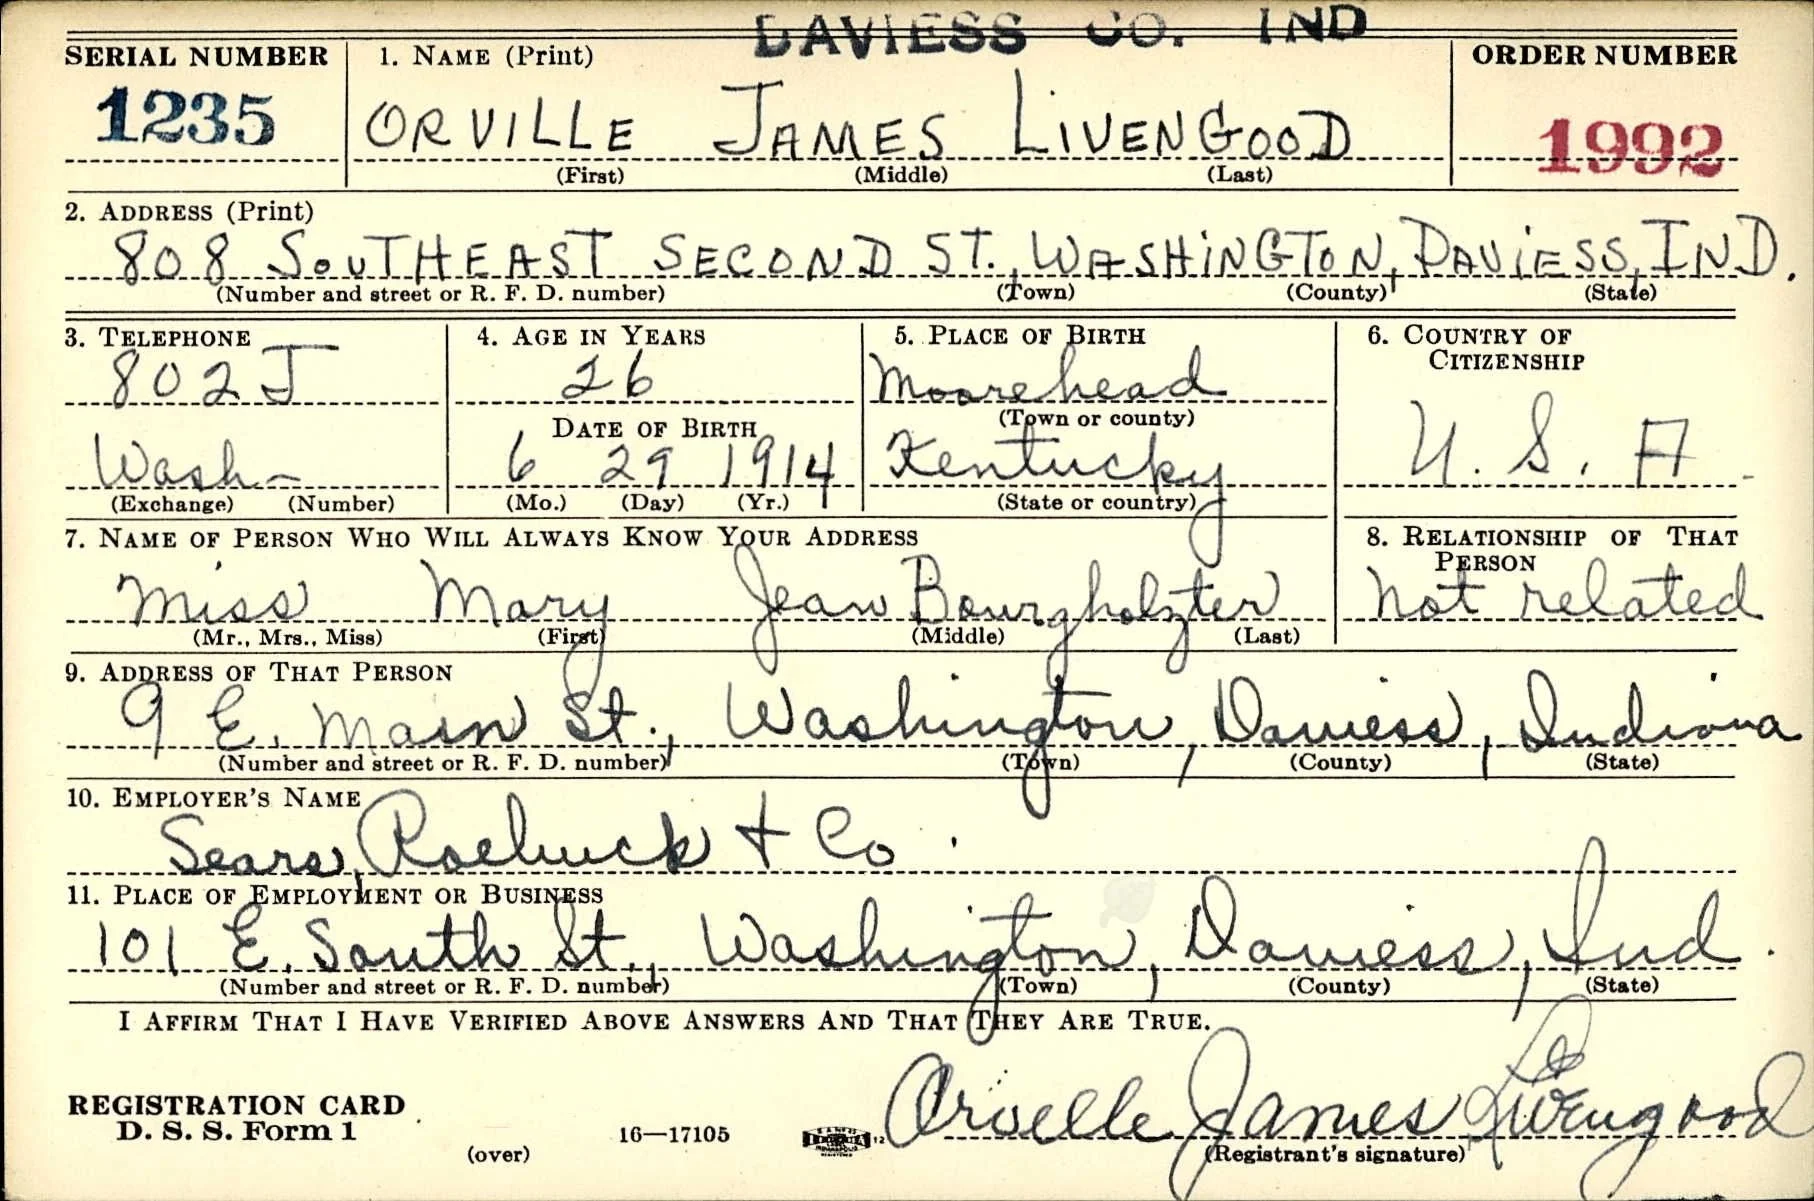 DAVIESS CO. IND
SERIAL NUMBER 1. NAME (Print) ORDER NUMBER
1235 ORVILLE JAMES LIVENGOOD 1992
(First) (Middle) (Last)
2. ADDRESS (Print)
808 SOUTHEAST SECOND ST., WASHINGTON, DAVIESS, IND.
(Number and street or R. F. D. number) (Town) (County) (State)
3. TELEPHONE 4. AGE IN YEARS 5. PLACE OF BIRTH 6. COUNTRY OF CITIZENSHIP
802J 26 Moorehead
DATE OF BIRTH (Town or county)
Wash- 6 29 1914 Kentucky U. S. A.
(Exchange) (Number) (Mo.) (Day) (Yr.) (State or country)
7. NAME OF PERSON WHO WILL ALWAYS KNOW YOUR ADDRESS 8. RELATIONSHIP OF THAT PERSON
Miss Mary Jean Bourgholzter not related
(Mr., Mrs., Miss) (First) (Middle) (Last)
9. ADDRESS OF THAT PERSON
9 E. Main St., Washington, Daviess, Indiana
(Number and street or R. F. D. number) (Town) (County) (State)
10. EMPLOYER'S NAME
Sears, Roebuck + Co.
11. PLACE OF EMPLOYMENT OR BUSINESS
101 E. South St., Washington, Daviess, Ind.
(Number and street or R. F. D. number) (Town) (County) (State)
I AFFIRM THAT I HAVE VERIFIED ABOVE ANSWERS AND THAT THEY ARE TRUE.
REGISTRATION CARD
D. S. S. Form 1 16—17105 12 Orville James Livengood
(over) (Registrant's signature)